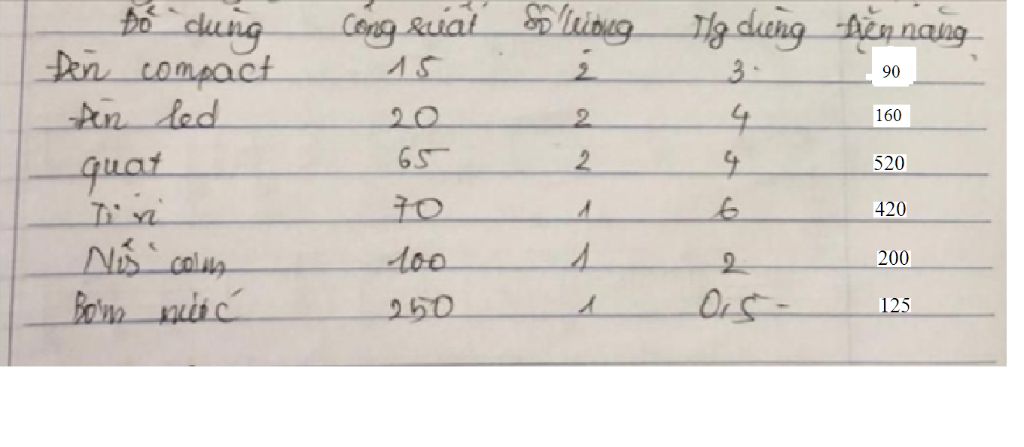 Đồ dùng Công suất Số lượng Tg dùng Điện năng
Đèn compact 15 2 3 90
Đèn led 20 2 4 160
quạt 65 2 4 520
Ti vi 70 1 6 420
Nồi cơm 100 1 2 200
Bơm nước 250 1 0,5 125